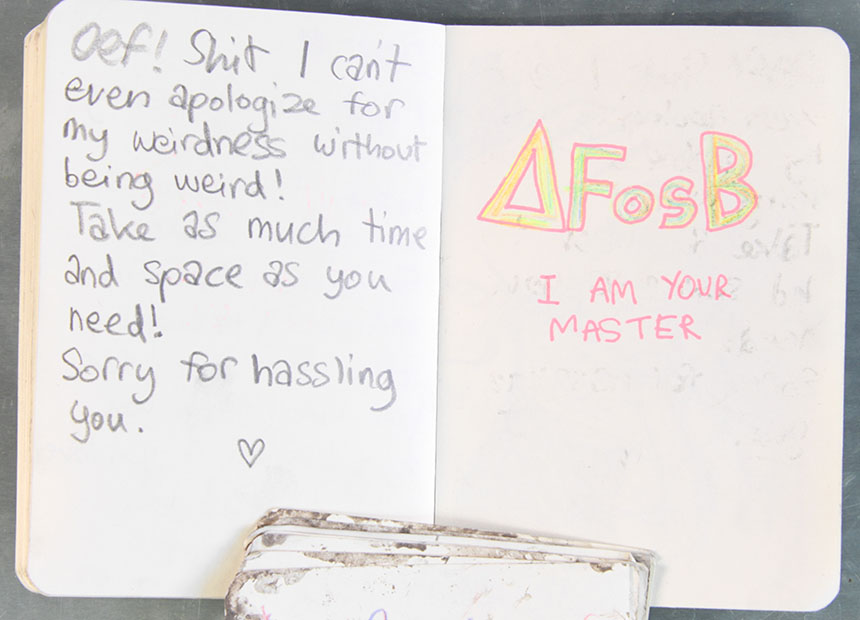 oef! Shit I can't
even apologize for
my weirdness without
being weird!
Take as much time
and space as you
need!
Sorry for hassling
you.
♡
ΔFosB
I AM YOUR
MASTER